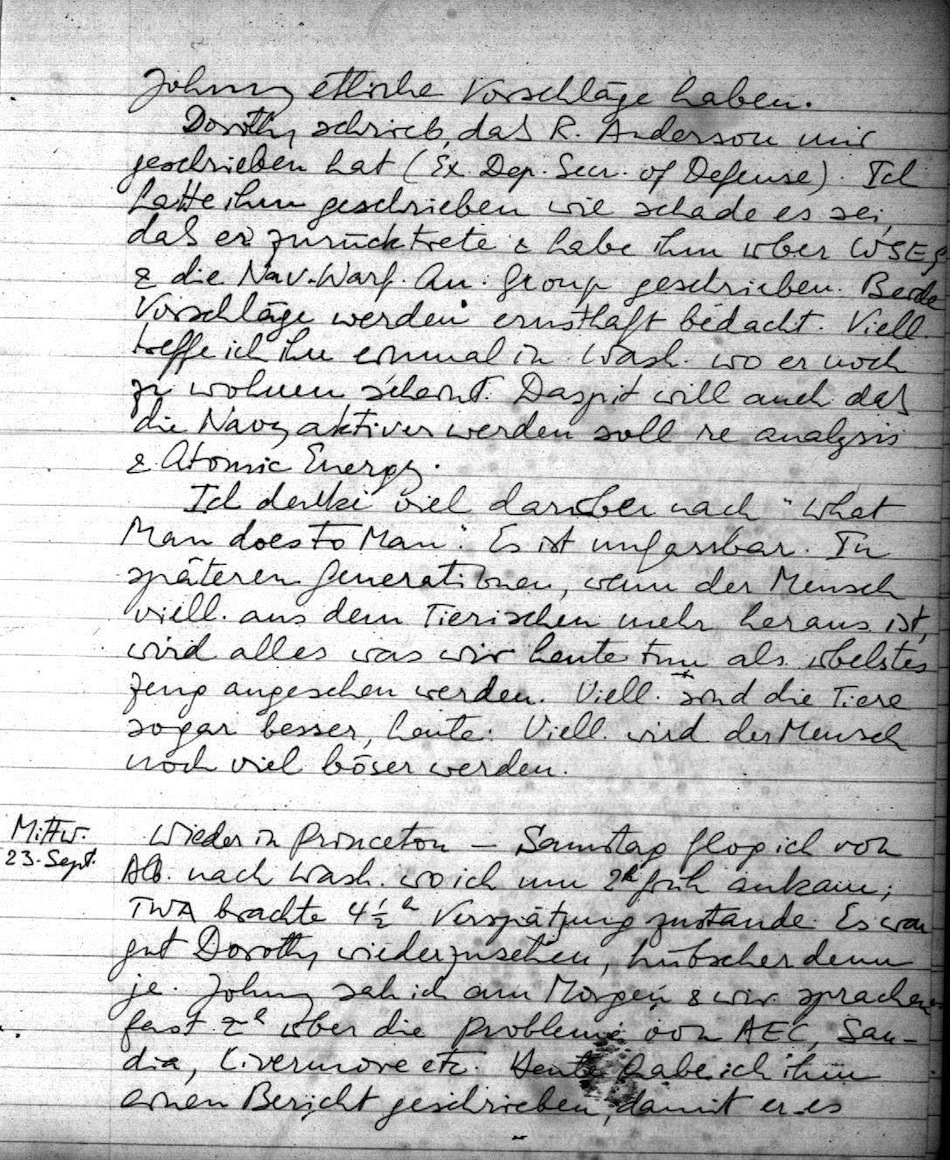 Johnny etliche Vorschläge haben.
Dorothy schrieb, daß R. Anderson mir
geschrieben hat (Ex. Dep. Secr. of Defense). Ich
hatte ihm geschrieben wie schade es sei,
daß er zurücktrete & habe ihm über WSEG
& die Nav. Warf. An. Group geschrieben. Beide
Vorschläge werden ernsthaft bedacht. Viell.
treffe ich ihn einmal in Wash. wo er noch
zu wohnen scheint. Daspit will auch daß
die Navy aktiver werden soll re analysis
& Atomic Energy.
Ich denke viel darüber nach "What
Man does to Man". Es ist unfassbar. In
späteren Generationen, wenn der Mensch
viell. aus dem Tierischen mehr heraus ist,
wird alles was wir heute tun als übelstes
Zeug angesehen werden. Viell. sind die Tiere
sogar besser, heute. Viell. wird der Mensch
noch viel böser werden.
Mittw.
23. Sept.
Wieder in Princeton – Samstag flog ich von
Alb. nach Wash. wo ich um 2h früh ankam;
TWA brachte 4½h Verspätung zustande. Es war
gut Dorothy wiederzusehen, hübscher denn
je. Johnny sah ich am Morgen & wir sprachen
fast 2h über die Probleme von AEC, San-
dia, Livermore etc. Heute habe ich ihm
einen Bericht geschrieben, damit er es